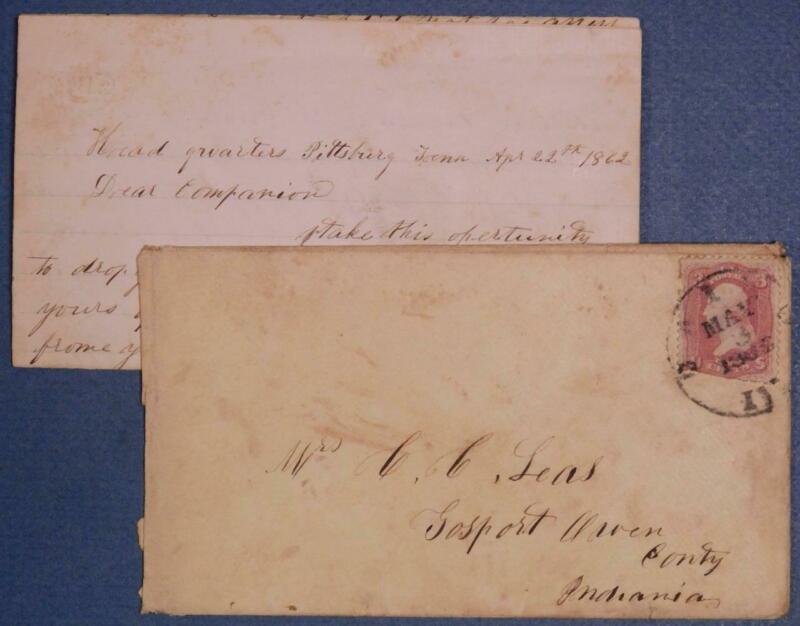 Head quarters Pittsburg Tenn Apr 22th 1862
Dear Companion
I take this opertunity
to drop
yours
frome
MAY
3
1862
Mrs C. C. Seas
Gosport Owen
Conty
Indiania